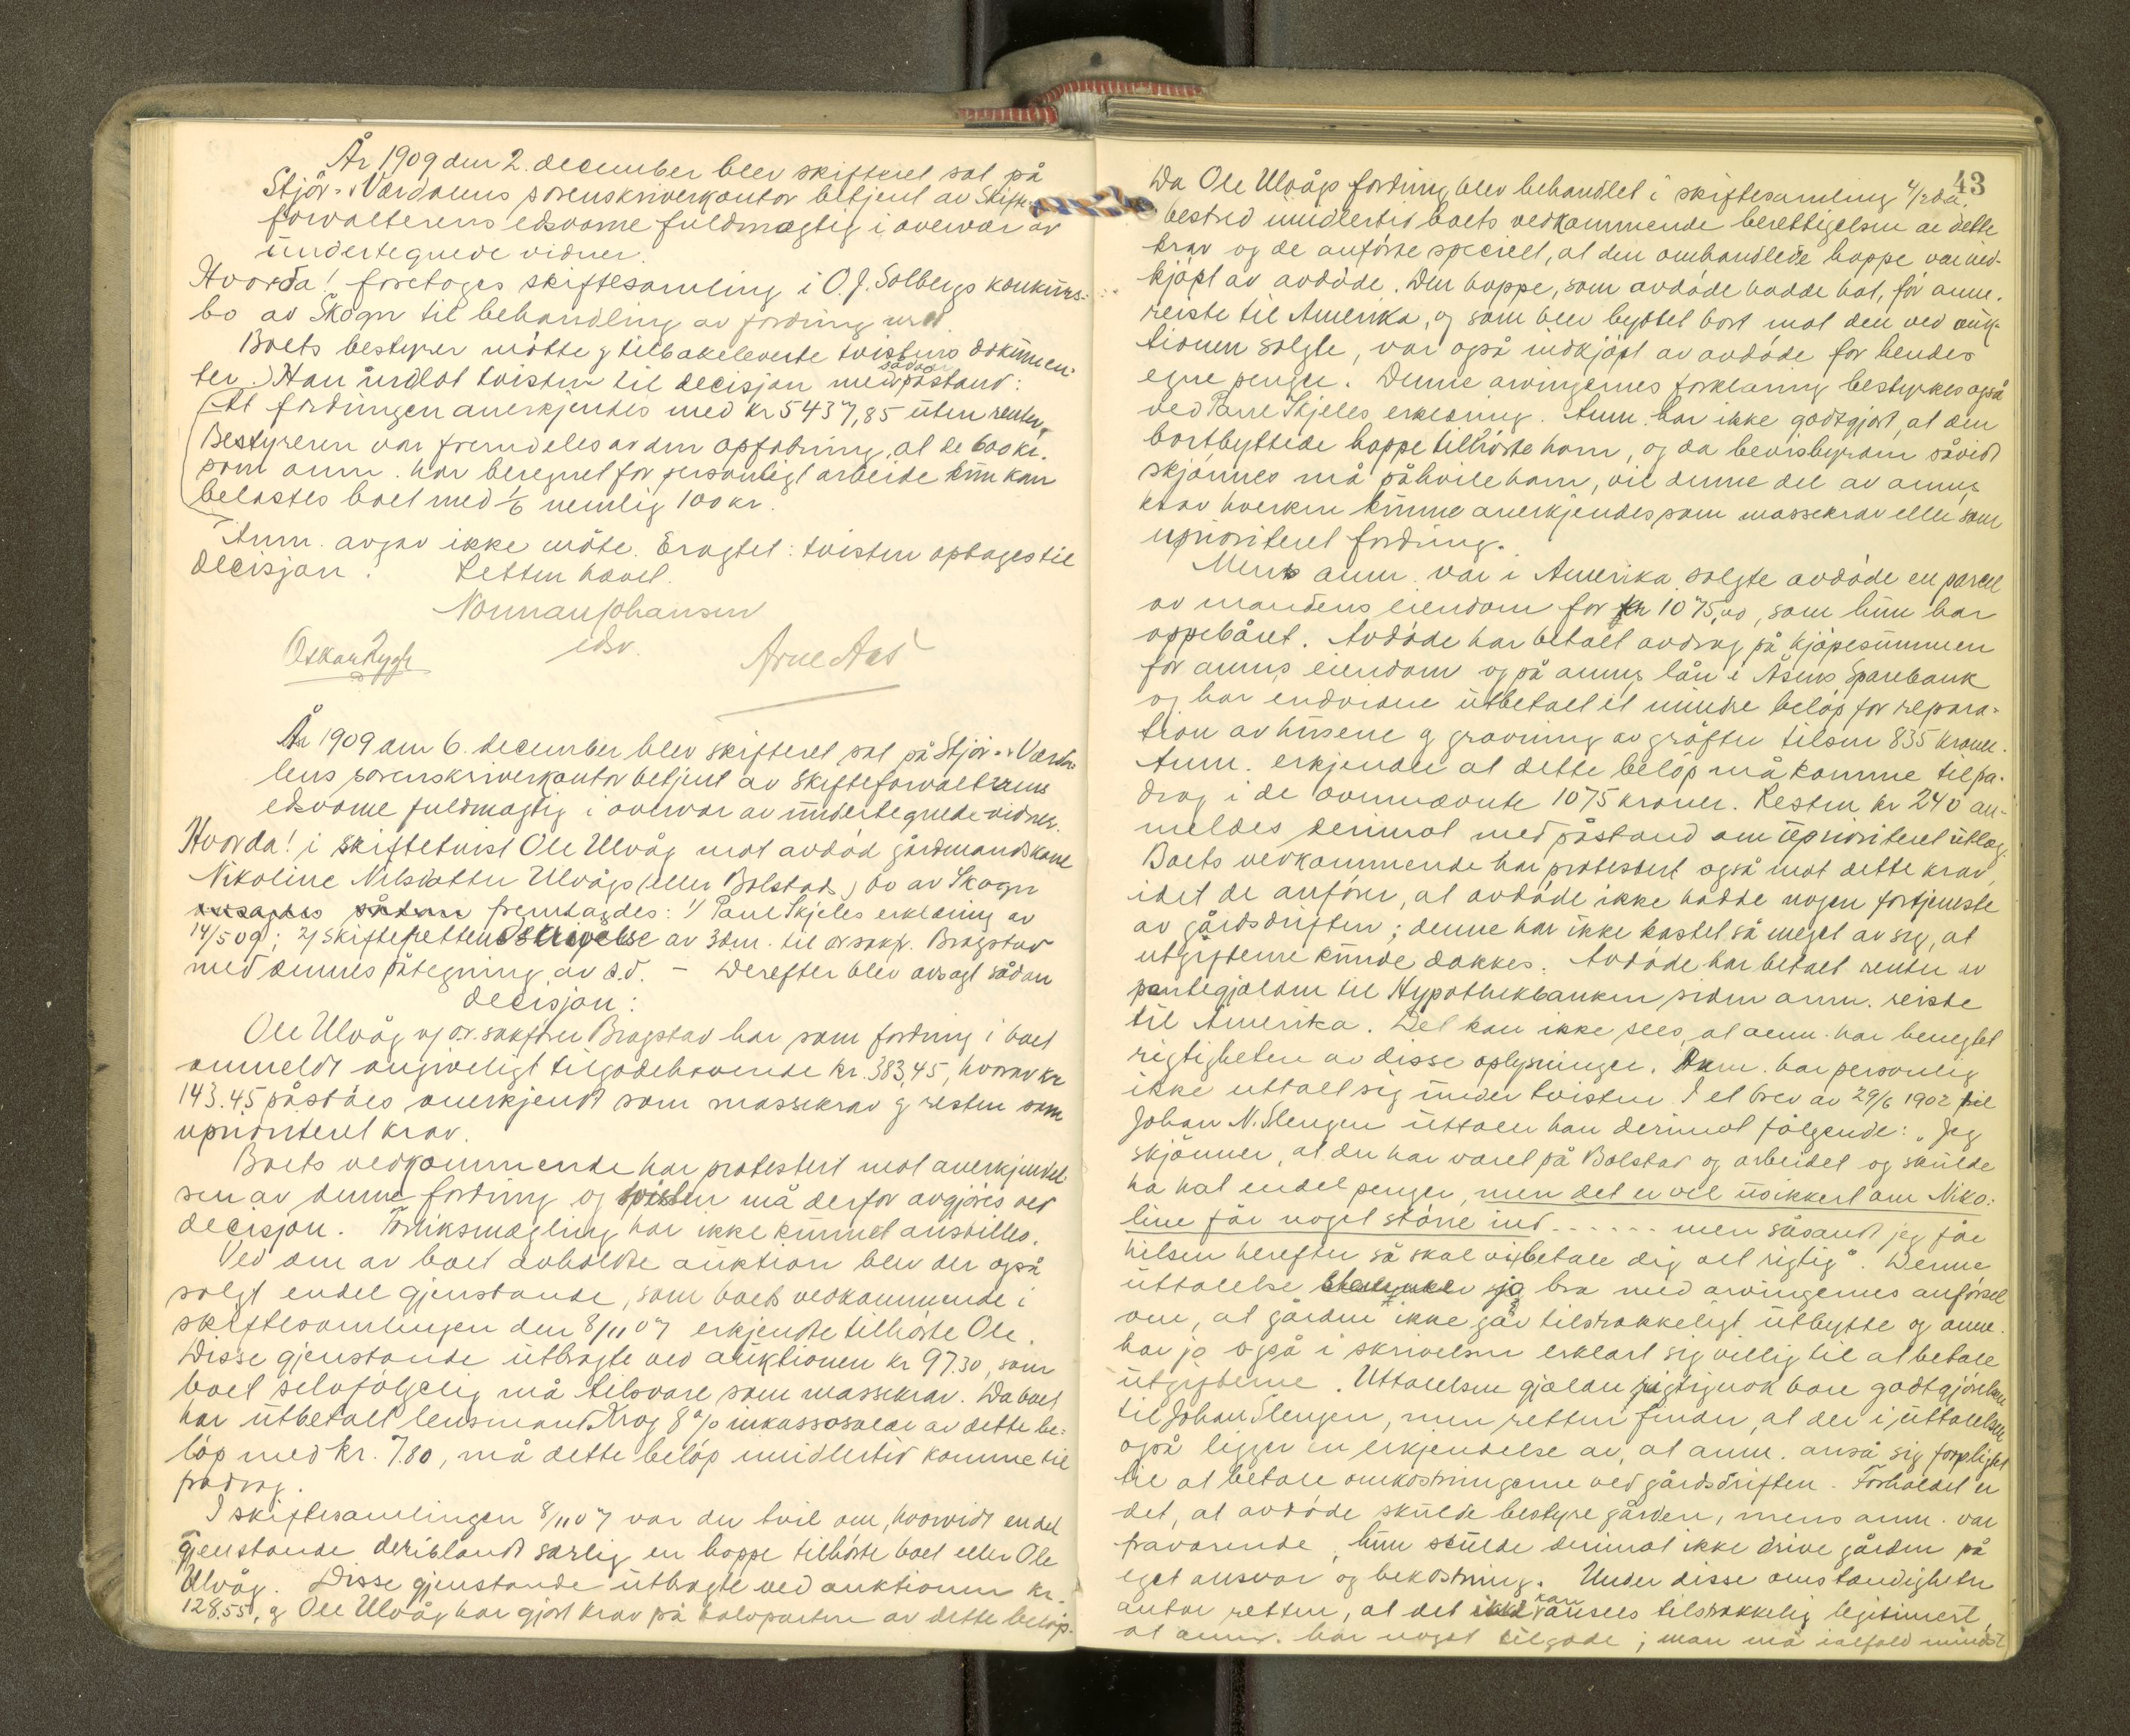 År 1909 den 2. december blev skifteret sat på
Stjör- & Værdalens sorenskriverkontor betjent av Skifte-
forvalterens edsvorne fuldmægtig i overvær av
undertegnede vidner.
Hvorda! foretoges skiftesamling i O. J. Solbergs konkurs-
bo av Skogn til behandling av fordring
Boets bestyrer mötte & tilbakeleverte tvistens dokumen-
ter. Han indlot tvisten til decisjon med sådan påstand:
At fordringen anerkjendes med kr 5437,85 uten renter.
Bestyreren var fremdeles av den opfatning, at de 600 kr.
som anm. har beregnet for personligt arbeide kun kan
belastes boet med 1/6 nemlig 100 kr.
Anm. avgav ikke möte. Eragtet: tvisten optages til
decisjon. Retten hævet.
Norman Johansen
edsv.
Oskar Rygh
Arne Aas
År 1909 den 6. december blev skifteret sat på Stjör- & Værda-
lens sorenskriverkontor betjent av skifteforvalterens
edsvorne fuldmægtig i overvær av undertegnede vidner.
Hvorda! i skiftetvist Ole Ulvåg mot avdöd gårdmandskone
Nikoline Nilsdatter Ulvågs (eller Bolstad) bo av Skogn
avsagdes sådan fremlagdes: 1/ Paul Skjeles erklæring av
14/5 09; 2/ Skifterettens skrivelse av 3 dm. til o.r.sakf. Bragstad
med dennes påtegning av s.d. - Derefter blev avsagt sådan
decisjon:
Ole Ulvåg v/ o.r. sakförer Bragstad har som fordring i boet
anmeldt angiveligt tilgodehavende kr. 383,45, hvorav kr
143.45 påståes anerkjendt som massekrav & resten som
uprioritert krav.
Boets vedkommende har protestert mot anerkjendel-
sen av denne fordring og tvisten må derfor avgjöres ved
decisjon. Forliksmægling har ikke kunnet anstilles.
Ved den av boet avholdte auktion blev der også
solgt endel gjenstande, som boets vedkommende i
skiftesamlingen den 8/11 07 erkjendte tilhörte Ole.
Disse gjenstande utbragte ved auktionen kr 97.30, som
boet selvfölgelig må tilsvare som massekrav. Da boet
har utbetalt lensmand Krog 8 % inkassosalær av dette be-
löp med kr. 7.80, må dette belöp imidlertid komme til
fradrag.
I skiftesamlingen 8/11 07 var der tvil om, hvorvidt endel
gjenstande deriblandt særlig en hoppe tilhörte boet eller Ole
Ulvåg. Disse gjenstande utbragte ved auktionen kr.
128.55, & Ole Ulvåg har gjort krav på halvparten av dette belöp.
43
Da Ole Ulvågs fordring blev behandlet i skiftesamling 4/2 d.å.
bestred imidlertid boets vedkommende berettigelsen av dette
krav og de anförte specielt, at den omhandlede hoppe var ind-
kjöpt av avdöde. Den hoppe, som avdöde hadde hat, för anm.
reiste til Amerika, og som blev byttet bort mot den ved auk-
tionen solgte, var også indkjöpt av avdöde for hendes
egne penger. Denne arvingernes forklaring bestyrkes også
ved Paul Skjeles erklæring. Anm. har ikke godtgjort, at den
bortbyttede hoppe tilhörte ham, og da bevisbyrden såvidt
skjönnes må påhvile ham, vil denne del av anms
krav hverken kunne anerkjendes som massekrav eller som
uprioriteret fordring.
Mens anm. var i Amerika solgte avdöde en parcel
av mandens eiendom for kr 1075,00, som hun har
oppebåret. Avdöde har betalt avdrag på kjöpesummen
for anms eiendom og på anms lån i Åsens Sparebank
og har endvidere utbetalt et mindre belöp for repara-
tion av husene & gravning av gröfter tilsm 835 kroner.
Anm. erkjender at dette belöp må komme til fra-
drag i de ovennævnte 1075 kroner. Resten kr 240 an-
meldes derimot med påstand om uprioriteret utlæg.
Boets vedkommende har protestert også mot dette krav,
idet de anförer, at avdöde ikke hadde nogen fortjeneste
av gårdsdriften; denne har ikke kastet så meget av sig, at
utgifterne kunde dækkes. Avdöde har betalt renter av
pantegjælden til Hypothekbanken siden anm. reiste
til Amerika. Det kan ikke sees, at anm. har benegtet
rigtigheten av disse oplysninger. Anm. har personlig
ikke uttalt sig under tvisten. I et brev av 29/6 1902 til
Johan N. Slengen uttaler han derimot fölgende: „Jeg
skjönner, at du har været på Bolstad og arbeidet og skulde
ha hat endel penger, men det er vel usikkert om Niko-
line får noget större ind ...... men såsandt jeg får
helsen herefter så skal vi betale dig alt rigtig". Denne
uttalelse stemmer jo bra med arvingernes anförsel
om, at gården ikke gav tilstrækkeligt utbytte og anm.
har jo også i skrivelsen erklært sig villig til at betale
utgifterne. Uttalelsen gjælder rigtignok bare godtgjörelsen
til Johan Slengen, men retten finder, at der i uttalelsen
også ligger en erkjendelse av, at anm. anså sig forpligtet
til at betale omkostningerne ved gårdsdriften. Forholdet er
det, at avdöde skulde bestyre gården, mens anm. var
fraværende, hun skulde derimot ikke drive gården på
eget ansvar og bekostning. Under disse omstændigheter
antar retten, at det ikke kan ansees tilstrækkelig legitimert,
at anm. har noget tilgode; man må ialfald mindst